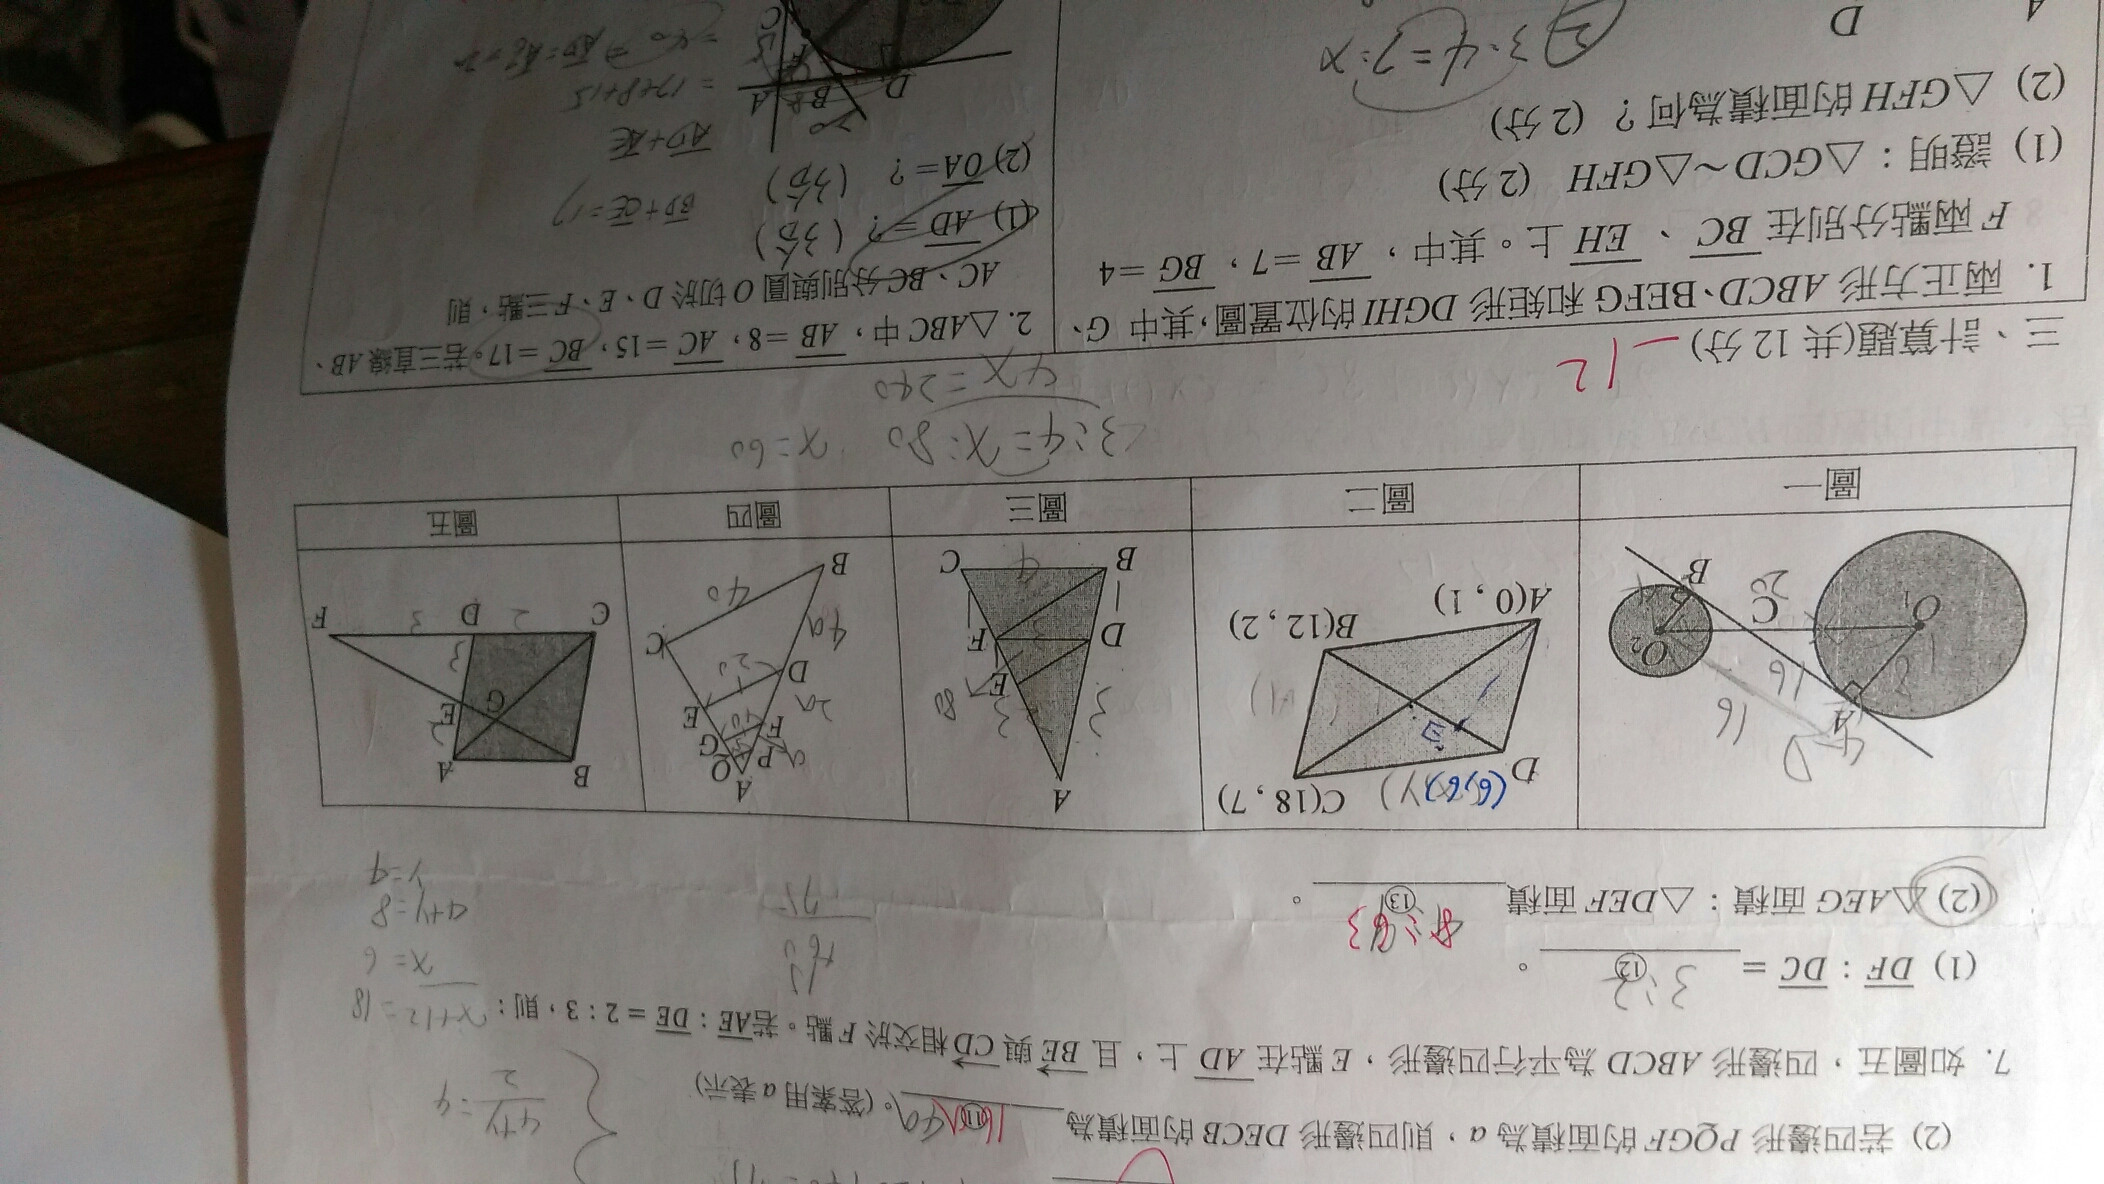 (2) 若四邊形 PQGF 的面積為 a,則四邊形 DECB 的面積為 ⑪ 。(答案用 a 表示)
7. 如圖五,四邊形 ABCD 為平行四邊形,E 點在 AD 上,且 BE 與 CD 相交於 F 點。若 AE : DE = 2 : 3,則:
(1) DF : DC = 3:2 ⑫ 。
(2) △AEG 面積:△DEF 面積 ⑬ 。
4+y/2 = 4
x+12=18
x=6
4+y=8
y=4
D C(18 , 7)
(6,6)
A(0 , 1) B(12 , 2)
E
A D 16 16 8 O₁ C 20 B O₂
A 3 3 80 E D F B 4 C
A Q P G F E D 20 2a 4a C 40 B
B A G E 2 3 C 2 D 3 F
圖一 圖二 圖三 圖四 圖五
3:4=x:80 x=60
4x=240
三、計算題(共 12 分) -12
1. 兩正方形 ABCD、BEFG 和矩形 DGHI 的位置圖,其中 G、
F 兩點分別在 BC、EH 上。其中,AB =7,BG =4
(1) 證明:△GCD~△GFH (2 分)
(2) △GFH 的面積為何? (2 分)
3:4=7:x
D
A
2. △ABC 中,AB =8,AC =15,BC =17。若三直線 AB、
AC、BC 分別與圓 O 切於 D、E、F 三點,則
(1) AD =? (3分)
(2) OA =? (3分)
BD+CE=17
AD+AE
=17+8+15
=40
D B A
F
C